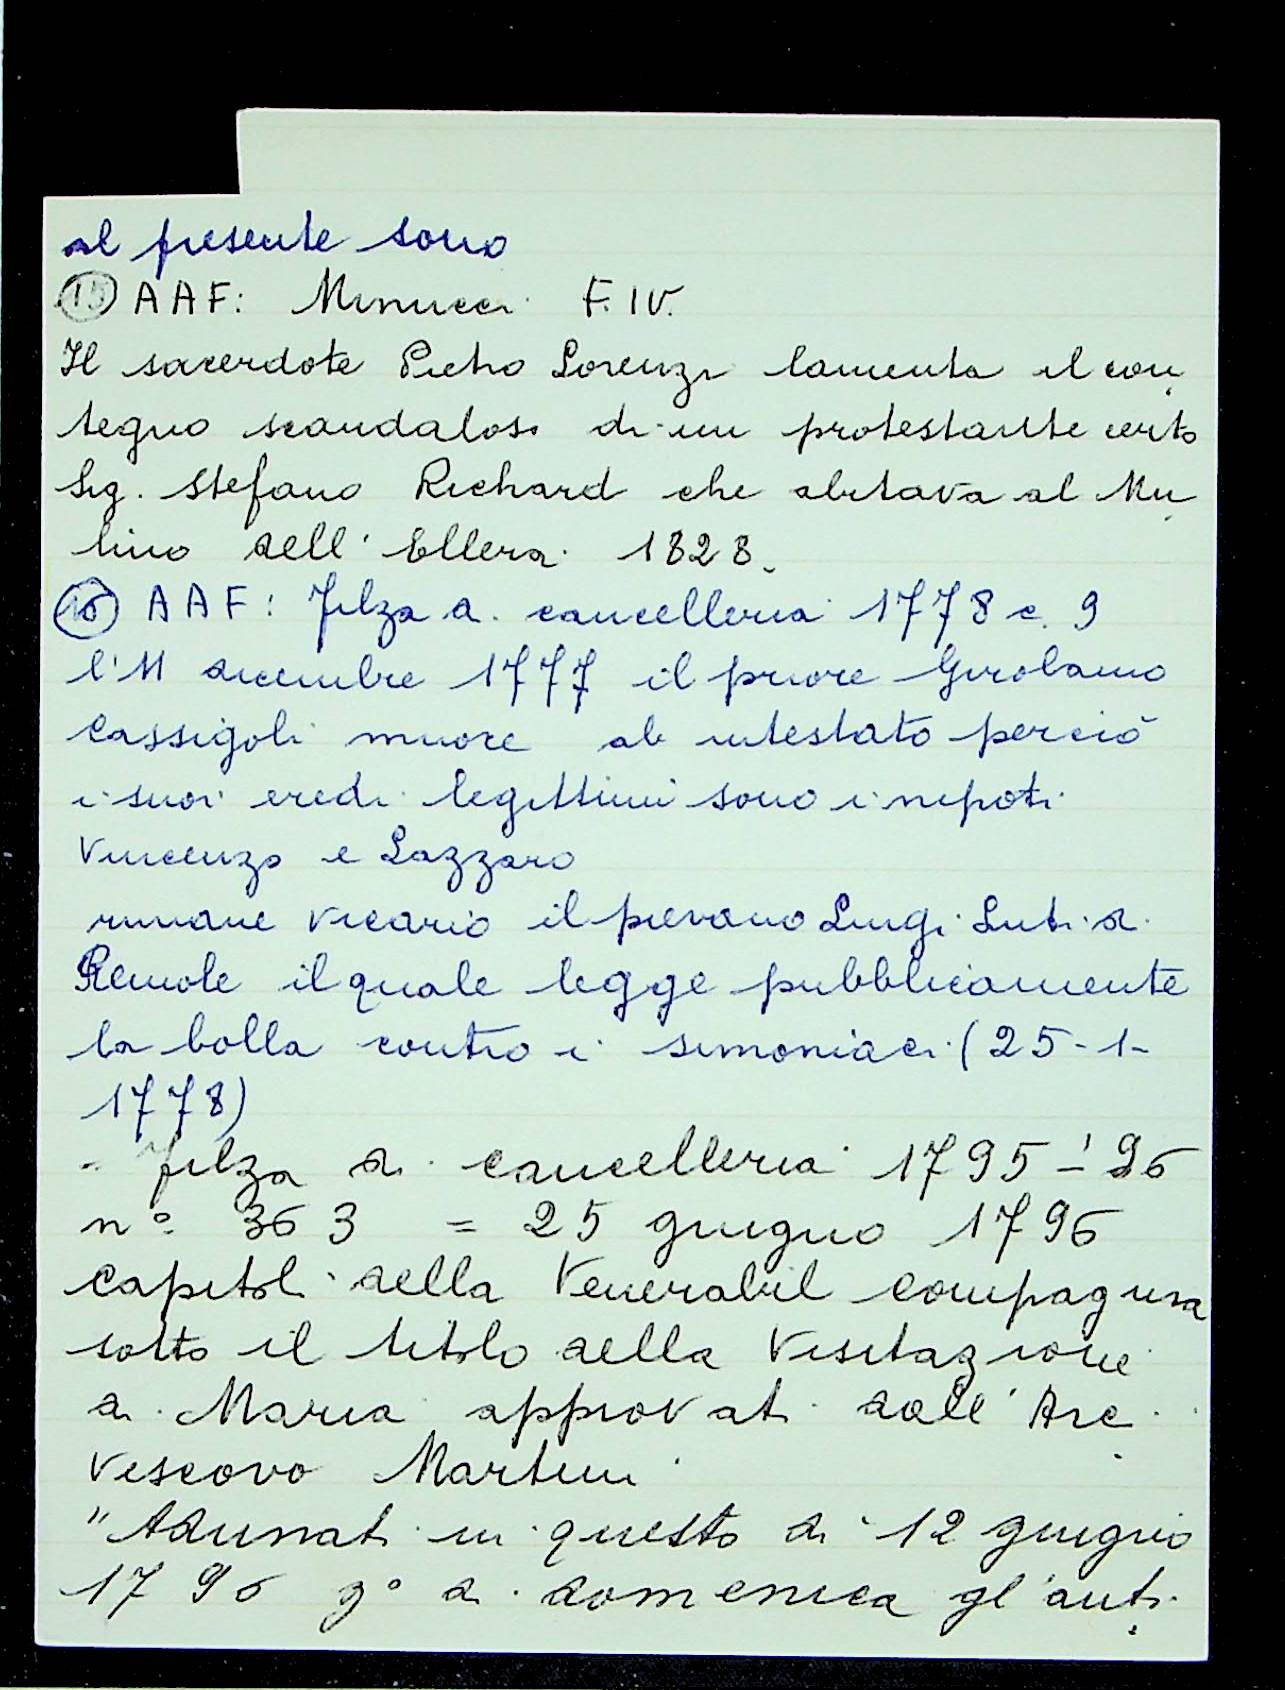 al presente sono
(15) AAF: Minucci F. IV.
Il sacerdote Pietro Lorenzi lamenta il con
tegno scandaloso di un protestante certo
Sig. Stefano Richard che abitava al Mu
lino dell'Ellera. 1828.
(16) AAF: Filza di cancelleria 1778 c. 9
l'11 dicembre 1777 il priore Girolamo
Cassigoli muore ab intestato perciò
i suoi eredi legittimi sono i nipoti
Vincenzo e Lazzaro
rimane vicario il pievano Luigi Luti di
Remole il quale legge pubblicamente
la bolla contro i simoniaci (25-1-
1778)
- Filza di cancelleria 1795-'96
n° 363 = 25 giugno 1796
Capitoli della Venerabil Compagnia
sotto il titolo della Visitazione
di Maria approvati dall'Arc
vescovo Martini
"Adunati in questo dì 12 giugno
1796 g° di domenica gl'anti